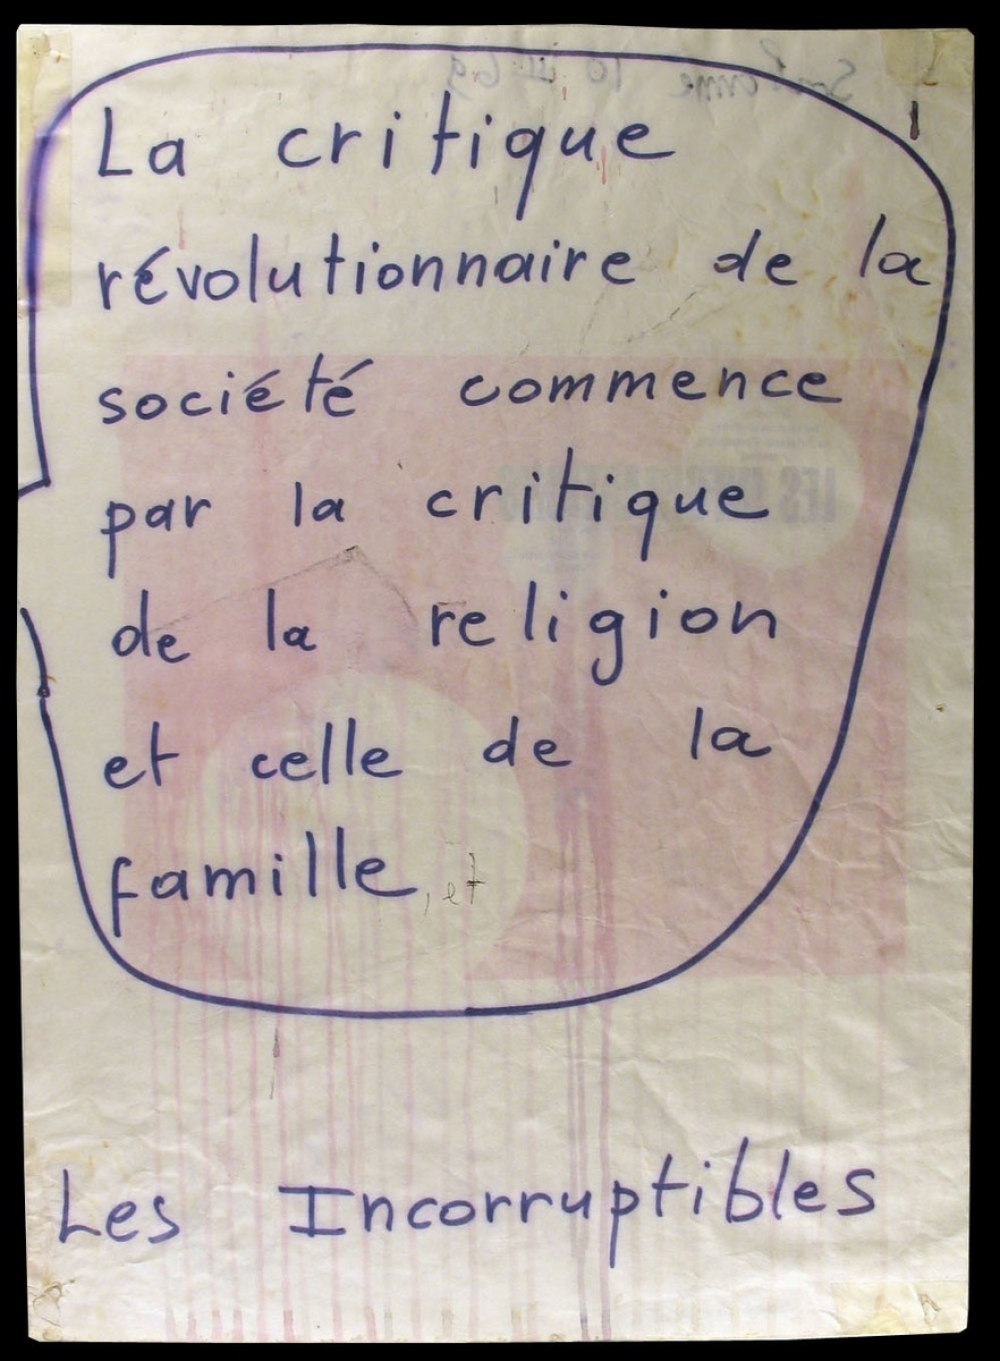 La critique
révolutionnaire de la
société commence
par la critique
de la religion
et celle de la
famille, et
Les Incorruptibles